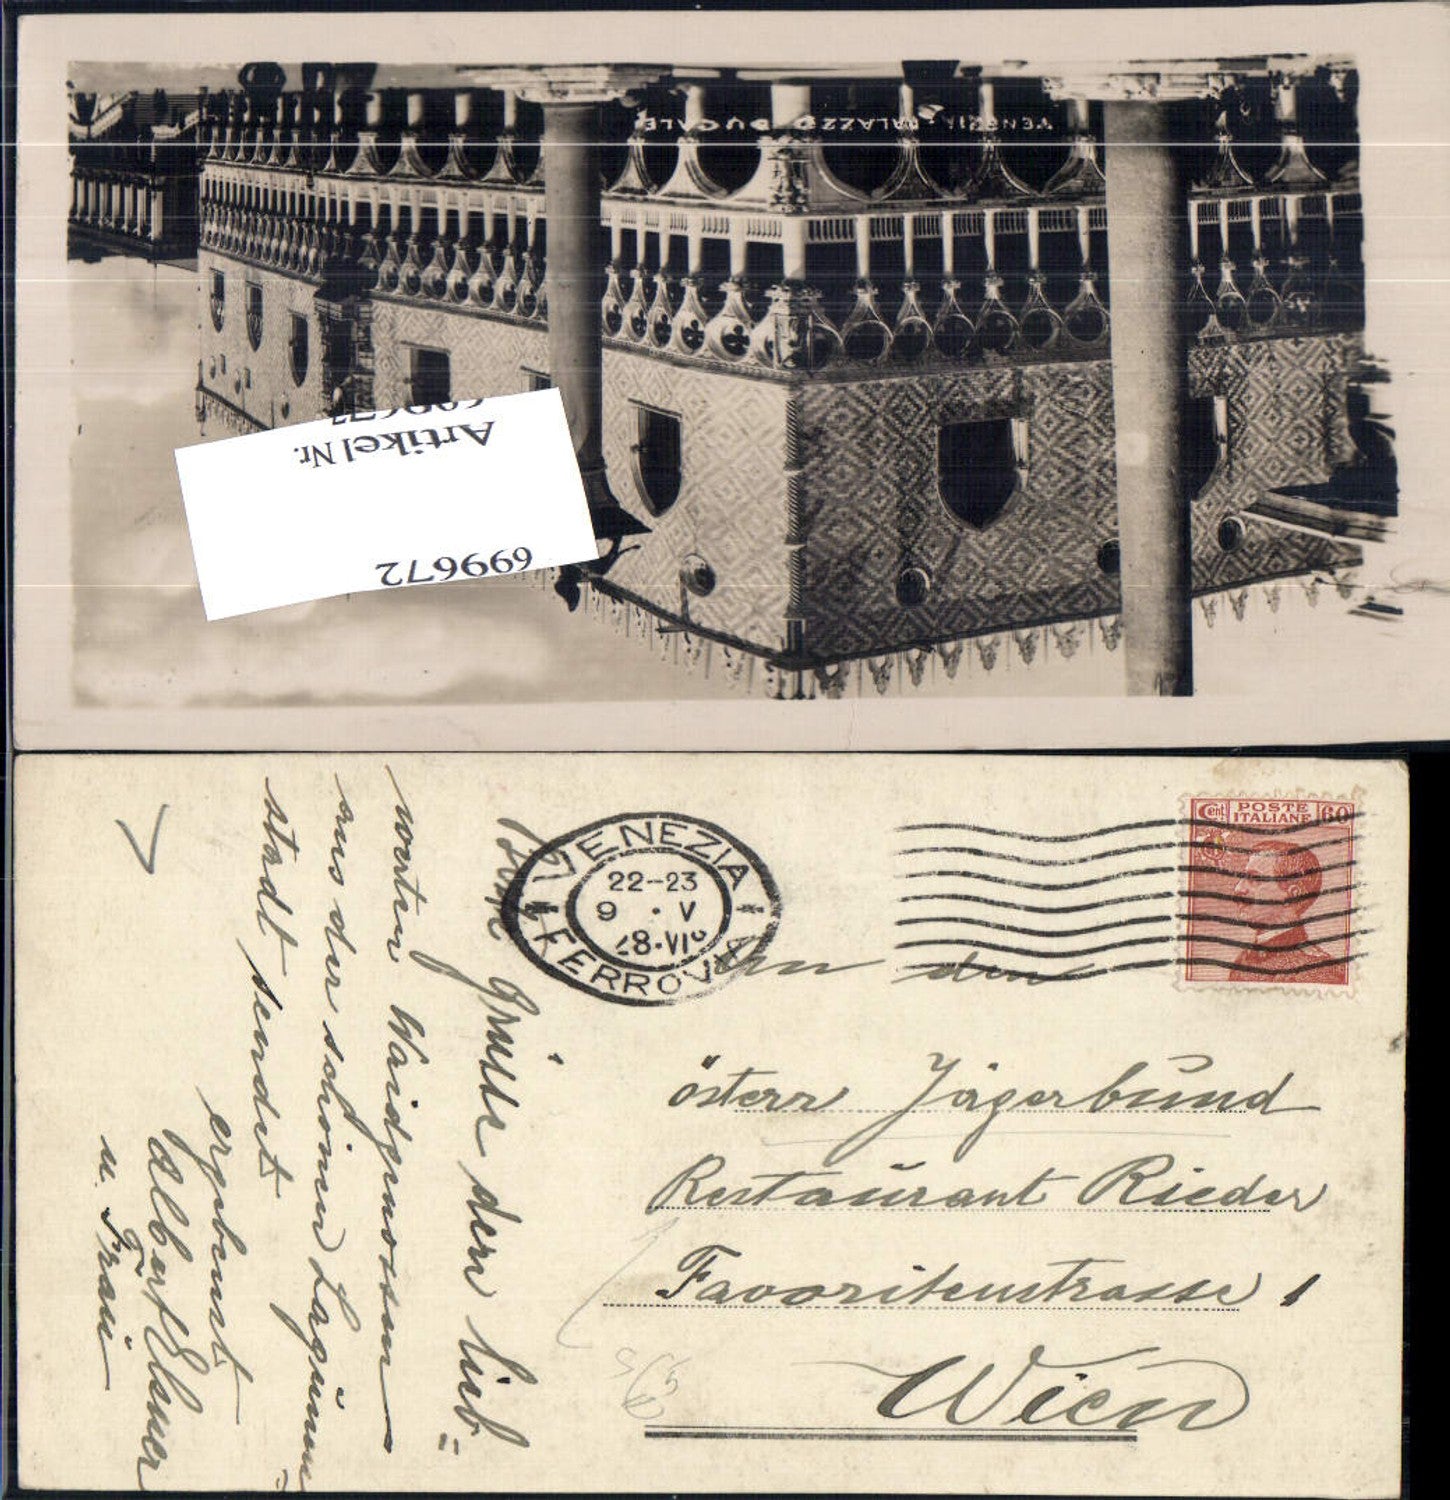 VENEZIA - PALAZZO DUCALE
Artikel Nr.
699672
699672
Cent. POSTE ITALIANE 60
VENEZIA
22-23
9 · V
28·VIº
FERROVIA
An den
österr Jägerbund
Restaurant Rieder
Favoritenstrasse 1
Wien
Grüsse den lieb=
werten Waidgenossen
aus der schönen Lagunen=
stadt sendet
ergebenst
Albert Elsner
u. Frau